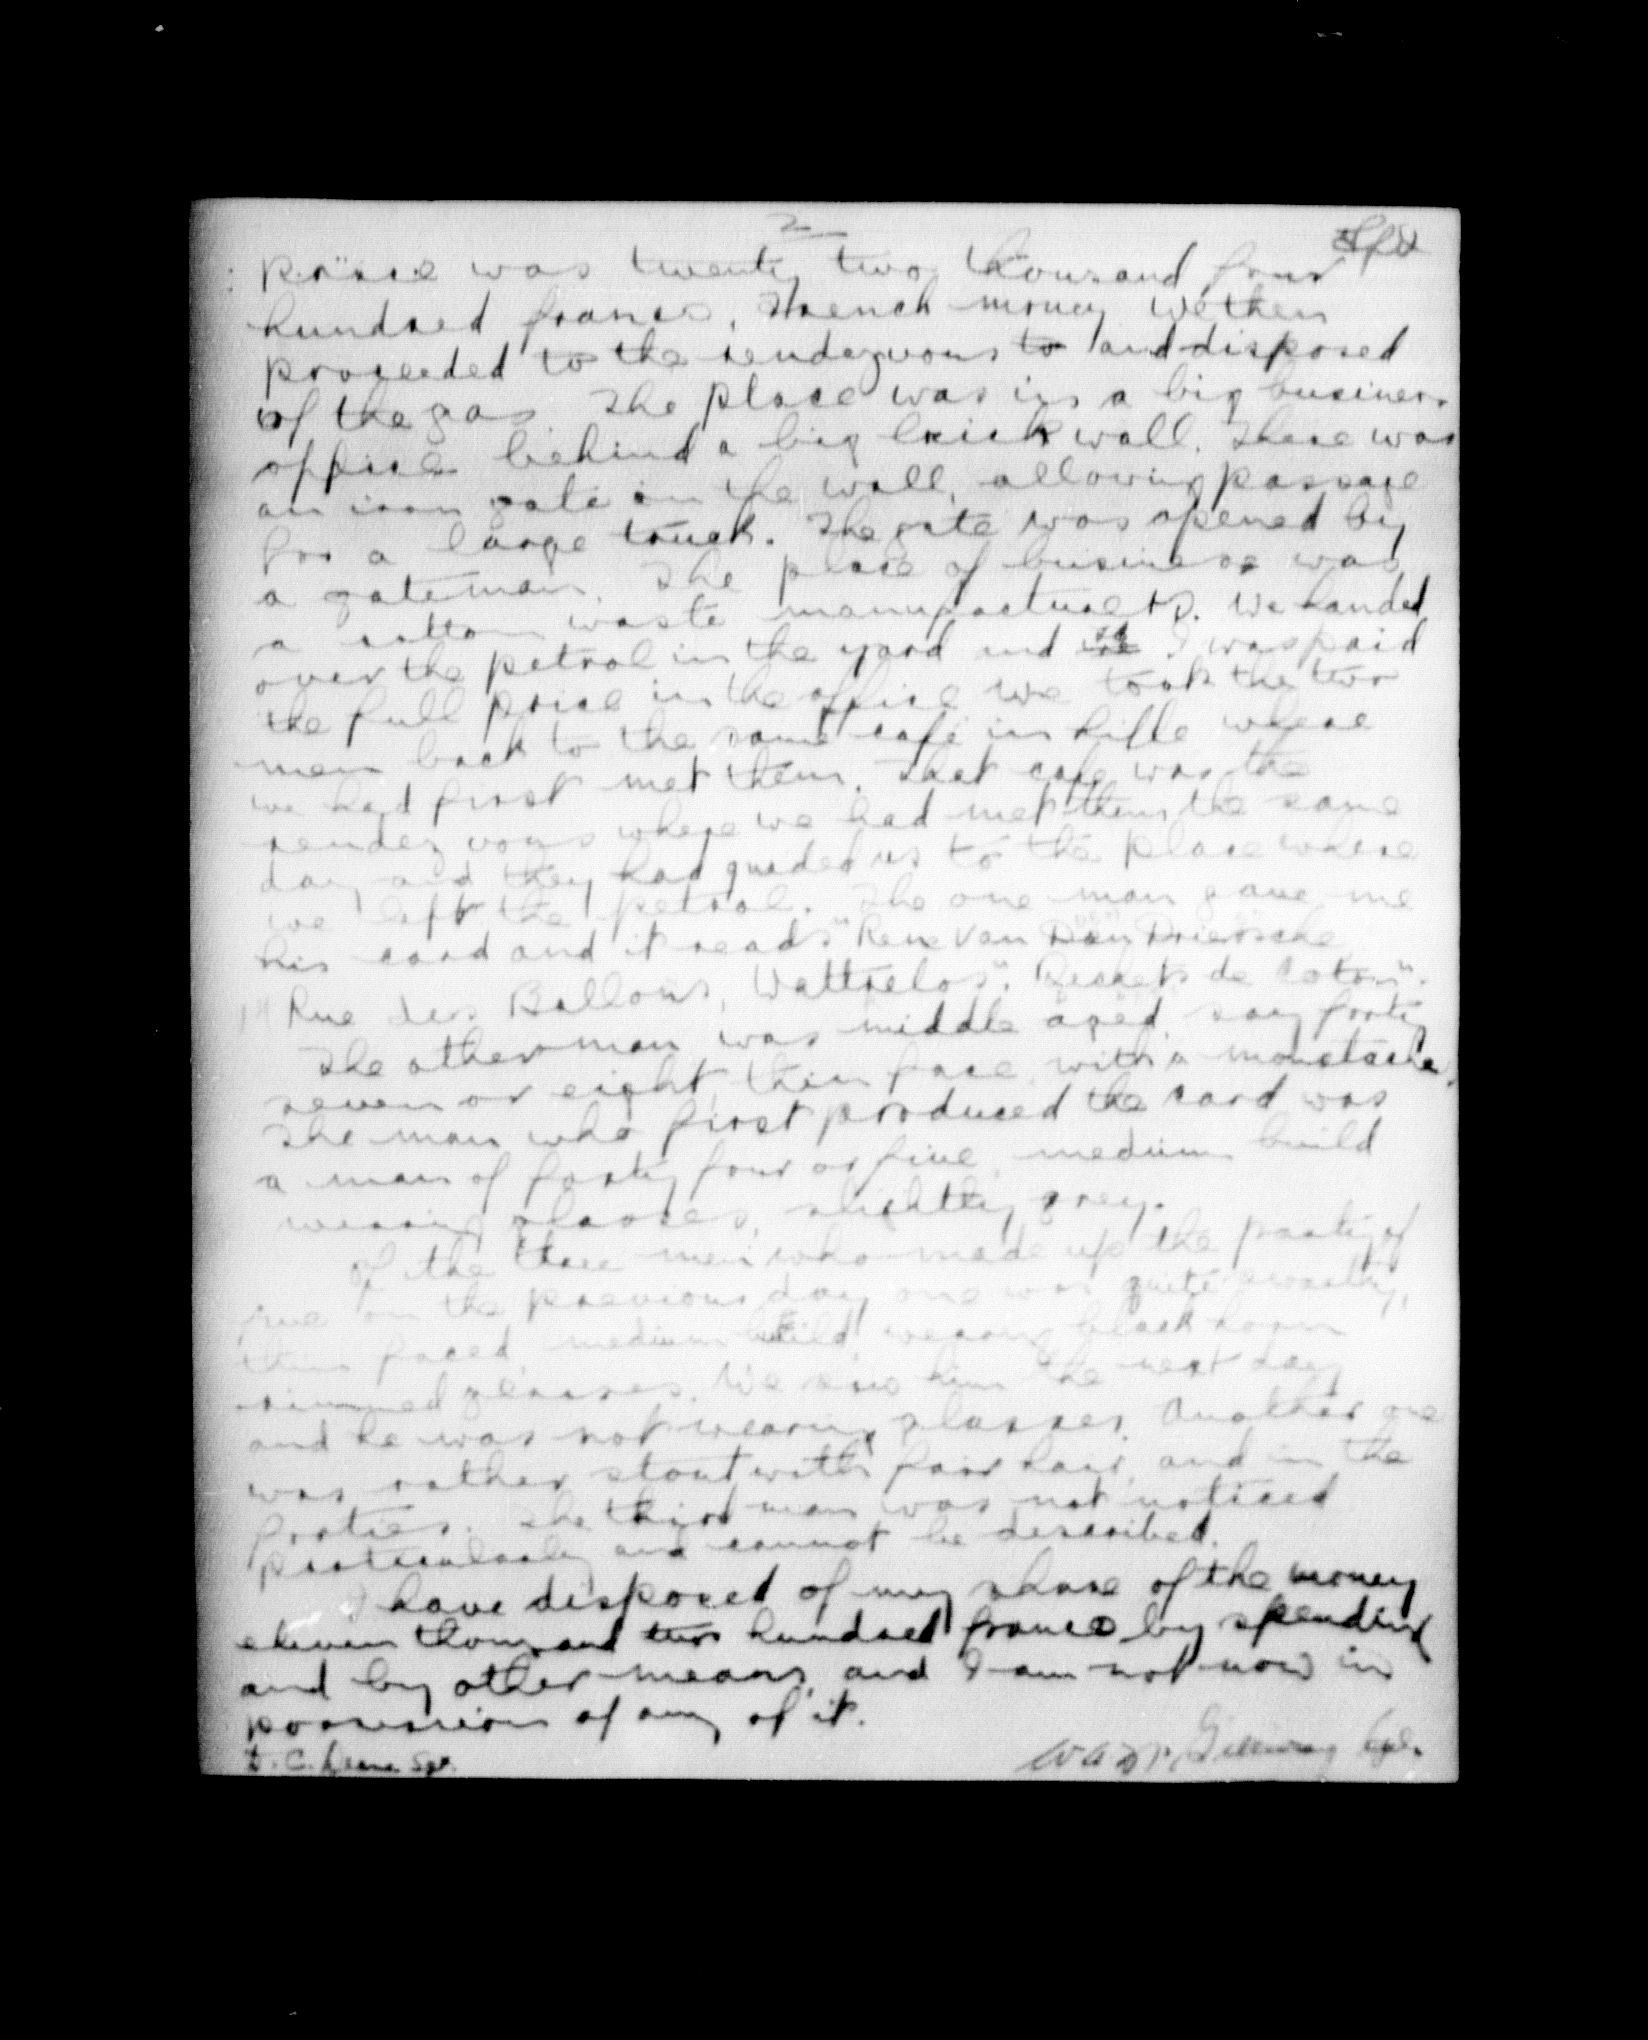 2
price was twenty two thousand four
hundred francs, French money. We then
proceeded to the rendezvous to and disposed
of the gas. The place was in a big business
office behind a big brick wall. There was
an iron gate in the wall, allowing passage
for a large truck. The gate was opened by
a gateman. The place of business was
a cotton waste manufacturers. We handed
over the petrol in the yard and I was paid
the full price in the office. We took the two
men back to the same cafe in Lille where
we had first met them. That cafe was the
rendezvous where we had met them the same
day and they had guided us to the place where
we left the petrol. The one man gave me
his card and it reads "Rene Van Den Driessche
Rue des Ballons, Wattrelos". Dechets de Coton".
The other man was middle aged, say forty
seven or eight, thin face, with a moustache.
The man who first produced the card was
a man of forty four or five, medium build
wearing glasses, slightly grey.
Of the three men who made up the party of
five on the previous day one was quite swarthy,
thin faced, medium build, wearing black horn
rimmed glasses. We saw him the next day
and he was not wearing glasses. Another one
was rather stout with fair hair, and in the
forties. The third man was not noticed
particularly and cannot be described.
I have disposed of my share of the money
eleven thousand two hundred francs by spending
and by other means, and I am not now in
possession of any of it.
D. C. Deane Sgt. Cpl.